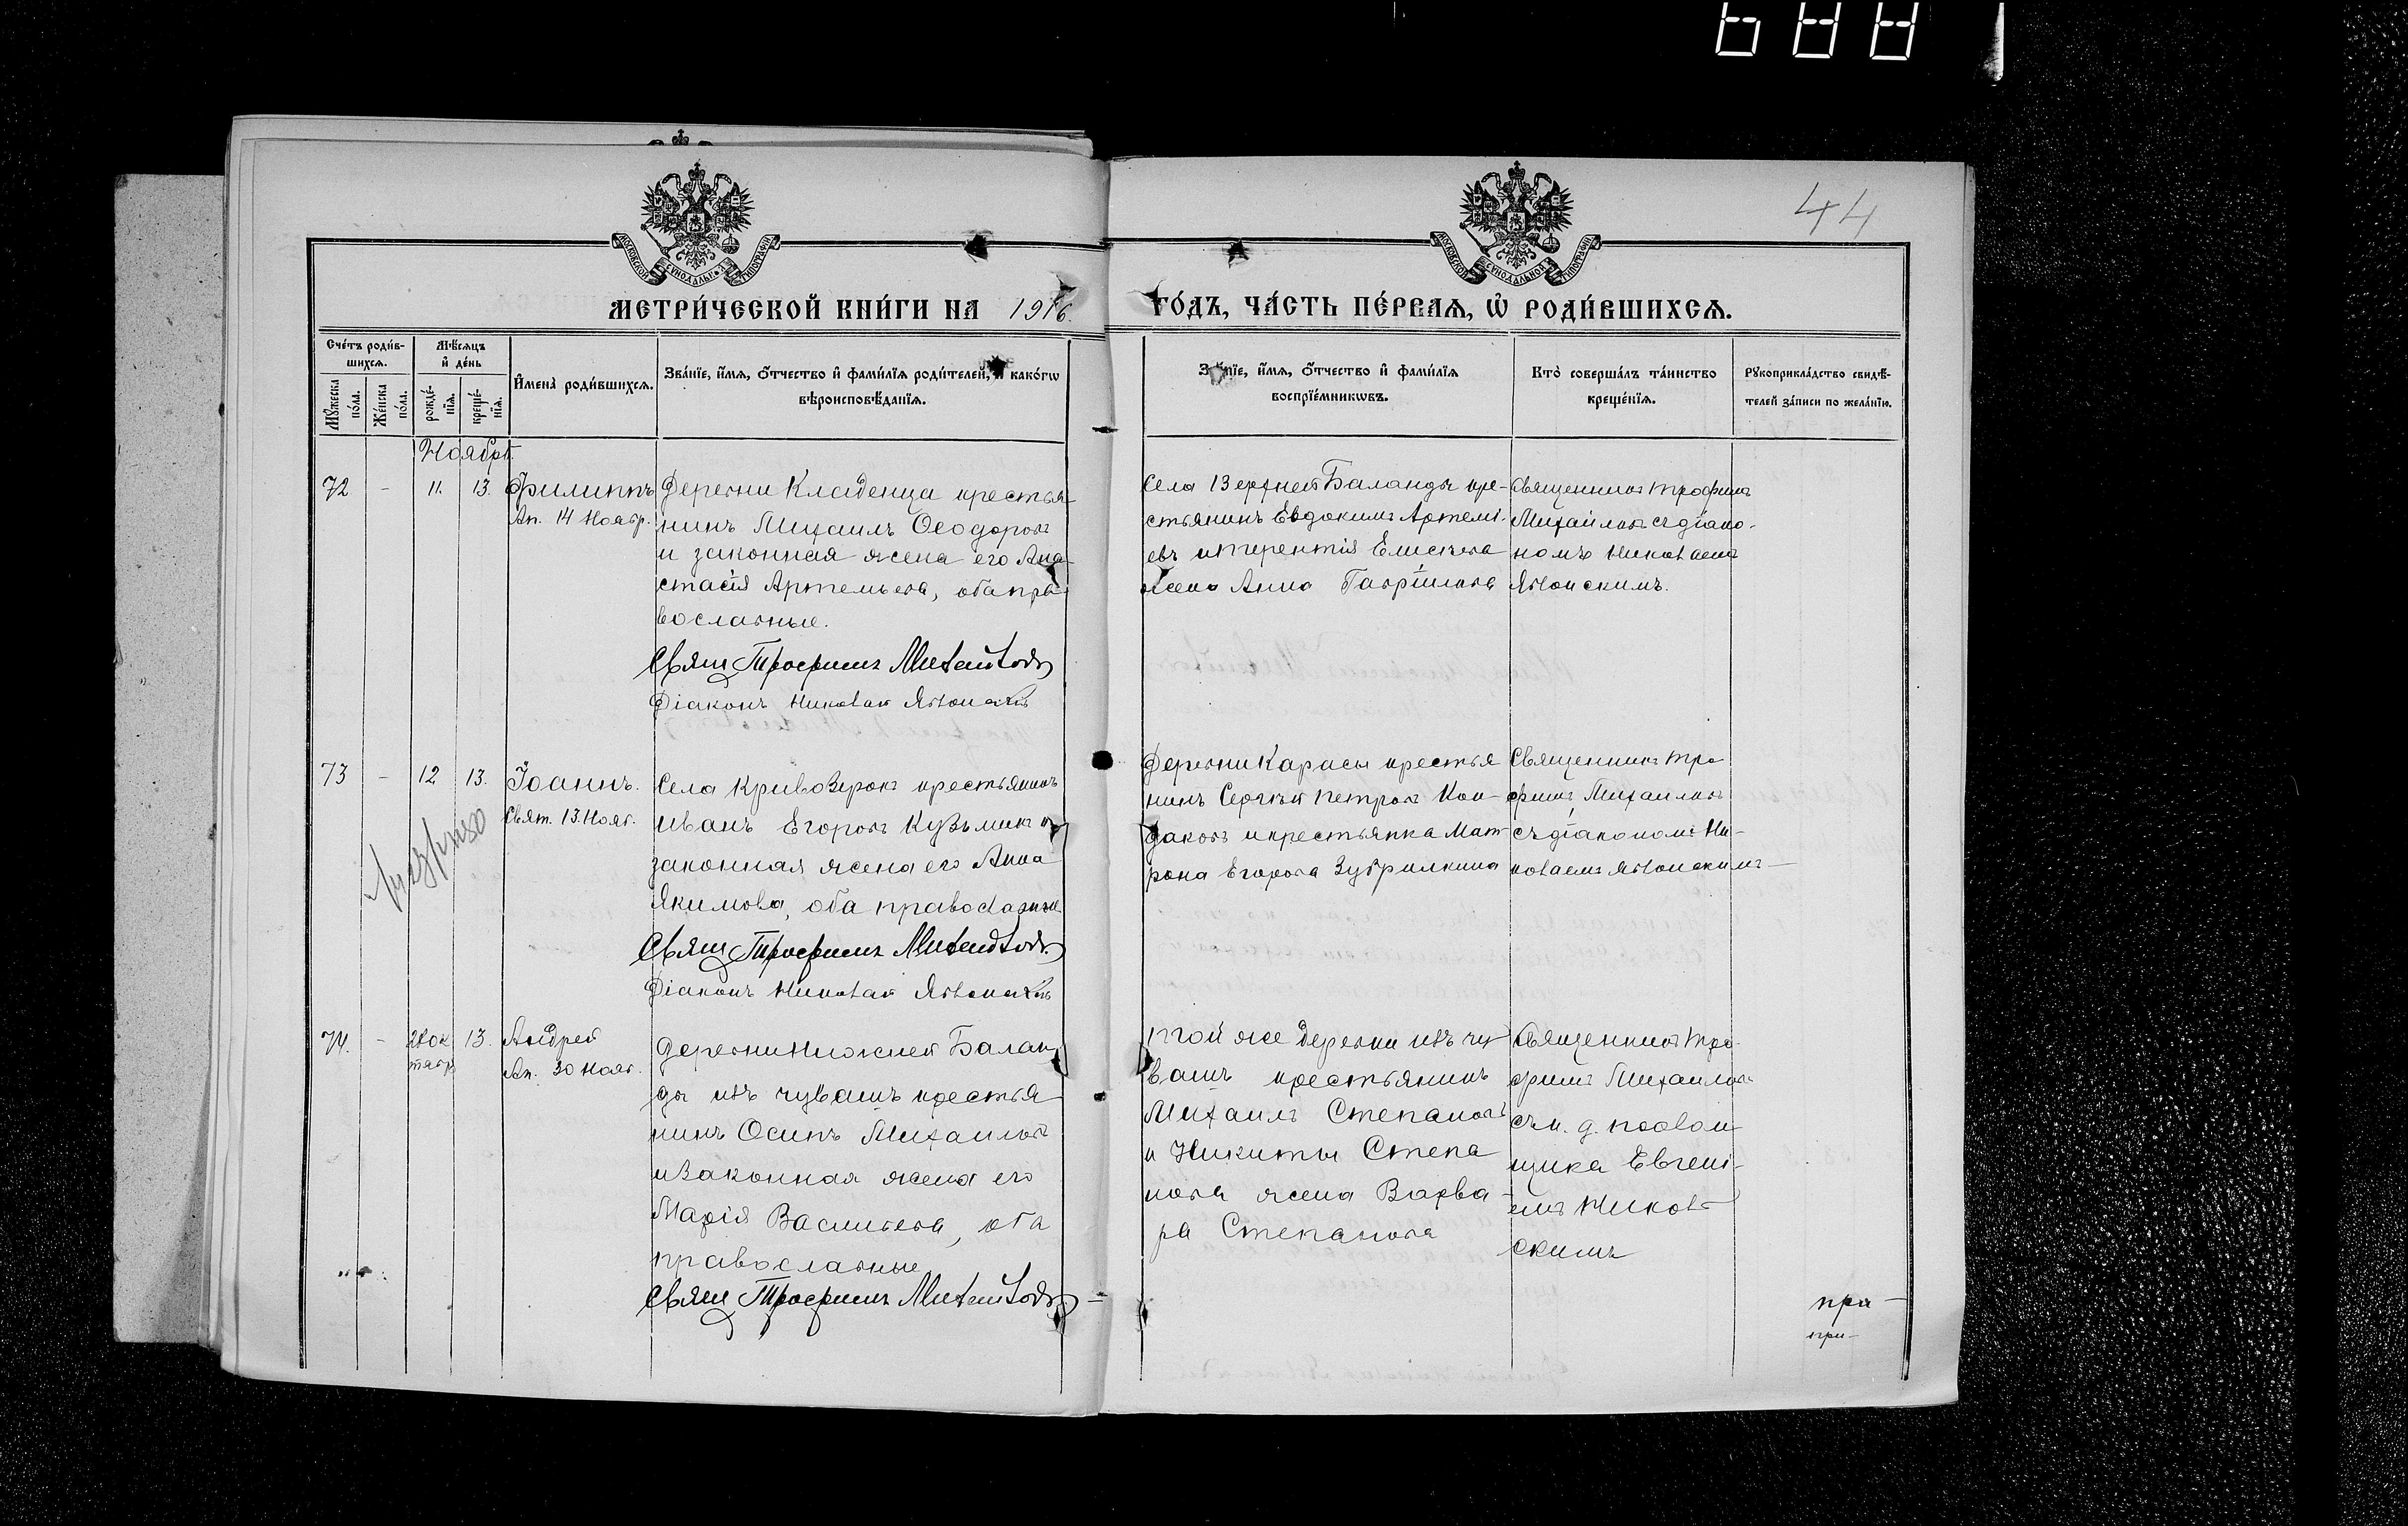 44
МОСКОВСКОЙ СѴНОДАЛЬНОЙ ТИПОГРАФІИ
МОСКОВСКОЙ СѴНОДАЛЬНОЙ ТИПОГРАФІИ
МЕТРИ́ЧЕСКОЙ КНИ́ГИ НА 1916.
ГО́ДЪ, ЧА́СТЬ ПЕ́РВАѦ, Ѡ҆ РОДИ́ВШИХСѦ.
Сче́тъ роди́в-
шихсѧ.
Мꙋ́жеска по́ла.
Же́нска по́ла.
Мѣ́сѧцъ
и҆ де́нь
рожде́-
нїѧ.
креще́-
нїѧ.
И҆мена̀ роди́вшихсѧ.
Зва́нїе, и҆́мѧ, ѻ҆́тчество и҆ фами́лїѧ роди́телей, и҆ како́гѡ
вѣроисповѣ́данїѧ.
Зва́нїе, и҆́мѧ, ѻ҆́тчество и҆ фами́лїѧ
воспрїе́мникѡвъ.
Кто̀ соверша́лъ та́инство
креще́нїѧ.
Рꙋкоприкла́дство свидѣ́-
телей за́писи по жела́нїю.
Ноябрь
72 - 11. 13. Филиппъ
Ап. 14 Нояб.
Деревни Кладенца крестья-
нинъ Михаилъ Ѳеодоровъ
и законная жена его Ана-
стасія Артемьева, оба пра-
вославные.
Свящ Трофимъ Михайловъ
Діаконъ Николай Яблонскій
Села Верхней Баланды кре-
стьянинъ Евдокимъ Артемі-
евъ и Терентія Елисеева
жена Анна Гавріилова
Священникъ Трофимъ
Михайловъ съ діако-
номъ Николаемъ
Яблонскимъ.
73 - 12 13. Іоаннъ.
Свят. 13. Нояб.
Села Кривозерокъ крестьянинъ
Иванъ Егоровъ Кузьминъ и
законная жена его Анна
Якимова, оба православные
Свящ Трофимъ Михайловъ
Діаконъ Николай Яблонскій
Деревни Карасы крестья
нинъ Сергѣй Петровъ Кон-
даковъ и крестьянка Мат-
рона Егорова Зубрилкина
Священникъ Тро
фимъ Михайловъ
съ діакономъ Ни-
колаемъ Яблонскимъ
74. - Ок
тябр 13. Андрей
Ап. 30 Нояб.
Деревни Нижней Балан-
ды изъ чувашъ крестья
нинъ Осипъ Михаиловъ
и законная жена его
Марія Васильева, оба
православные
Свящ Трофимъ Михайловъ
Той же деревни изъ чу-
вашъ крестьянинъ
Михаилъ Степановъ
и Никиты Степа
нова жена Варва-
ра Степанова
Священникъ Тро-
фимъ Михайловъ
съ и. д. псалом-
щика Евгені-
емъ Николь-
скимъ
при-
при-